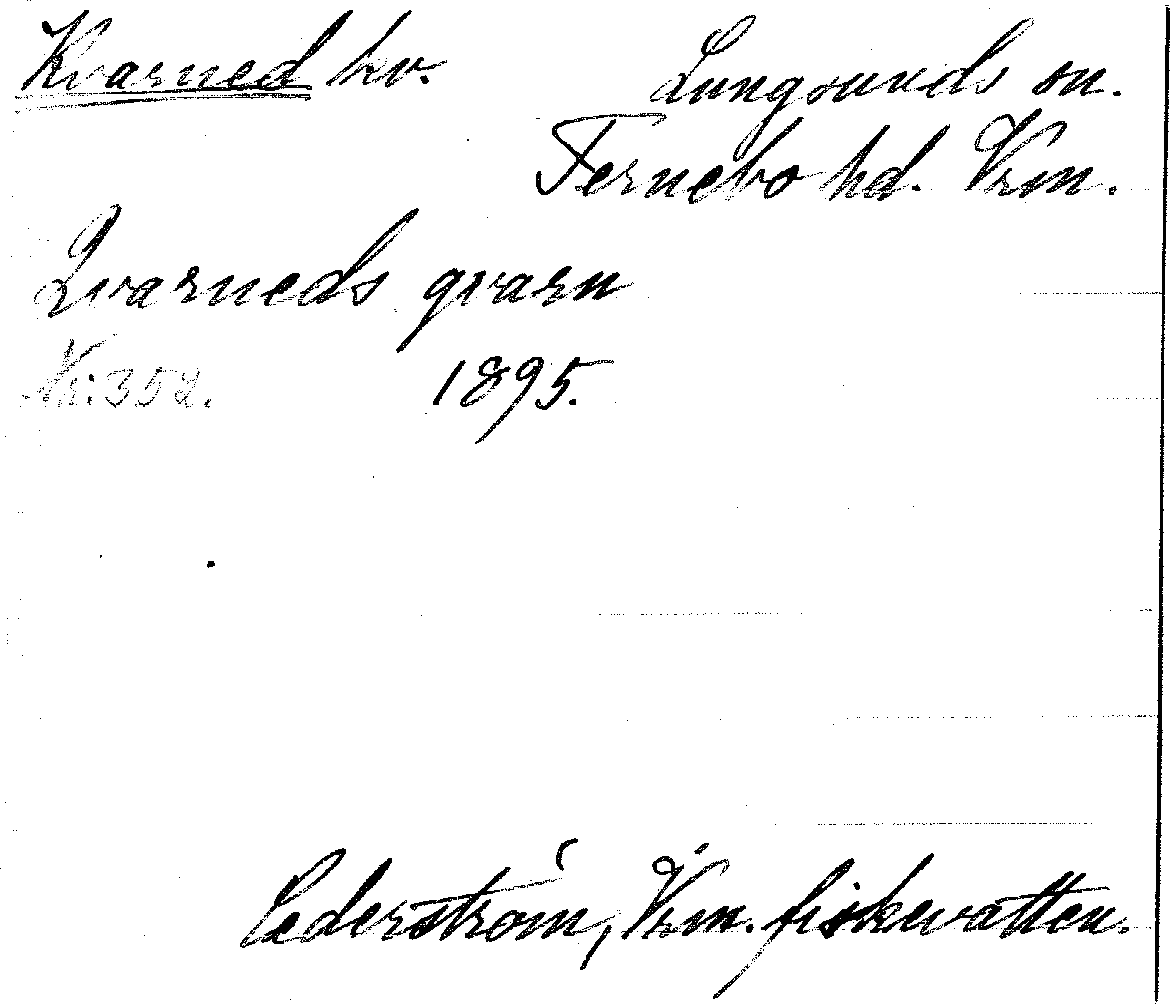 Kvarned kv. Lungsunds sn.
Fernebo hd. Vrm.
Qvarneds qvarn
Nr: 352. 1895.
Cederström, Vrm. fiskevatten.